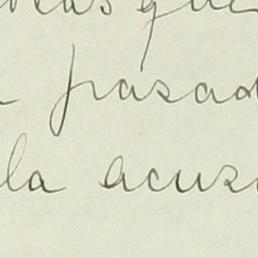 que
pasad
la acus